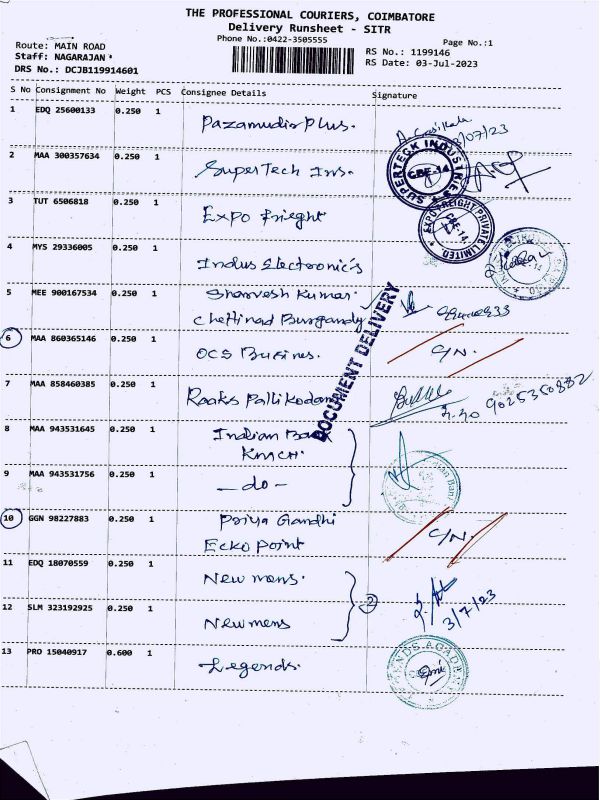 THE PROFESSIONAL COURIERS, COIMBATORE
Delivery Runsheet - SITR
Phone No.:0422-3505555
Page No.:1
Route: MAIN ROAD
Staff: NAGARAJAN
DRS No.: DCJB119914601
RS No.: 1199146
RS Date: 03-Jul-2023
S No Consignment No Weight PCS Consignee Details Signature
1 EDQ 25600133 0.250 1 Pazamudir Plus.
/07/23
2 MAA 300357634 0.250 1 SuperTech Ins.
SUPERTECK INDUSTRIES CBE-14
3 TUT 6506818 0.250 1 Expo Frieght
EXPO FREIGHT PRIVATE LIMITED CBE-14
4 MYS 29336005 0.250 1 Indus Electronic's
5 MEE 900167534 0.250 1 Sharvesh Kumar.
Chettinad Burgandy
DOCUMENT DELIVERY
6 MAA 860365146 0.250 1 OCS Busines. C/N.
7 MAA 858460385 0.250 1 Raaks Pallikodam
9025350882
8 MAA 943531645 0.250 1 Indian Bank
KMCH.
9 MAA 943531756 0.250 1 - do -
10 GGN 98227883 0.250 1 Priya Gandhi
Ecko Point C/N.
11 EDQ 18070559 0.250 1 New mens.
2
3/7/23
12 SLM 323192925 0.250 1 Newmens
13 PRO 15040917 0.600 1 Legends.